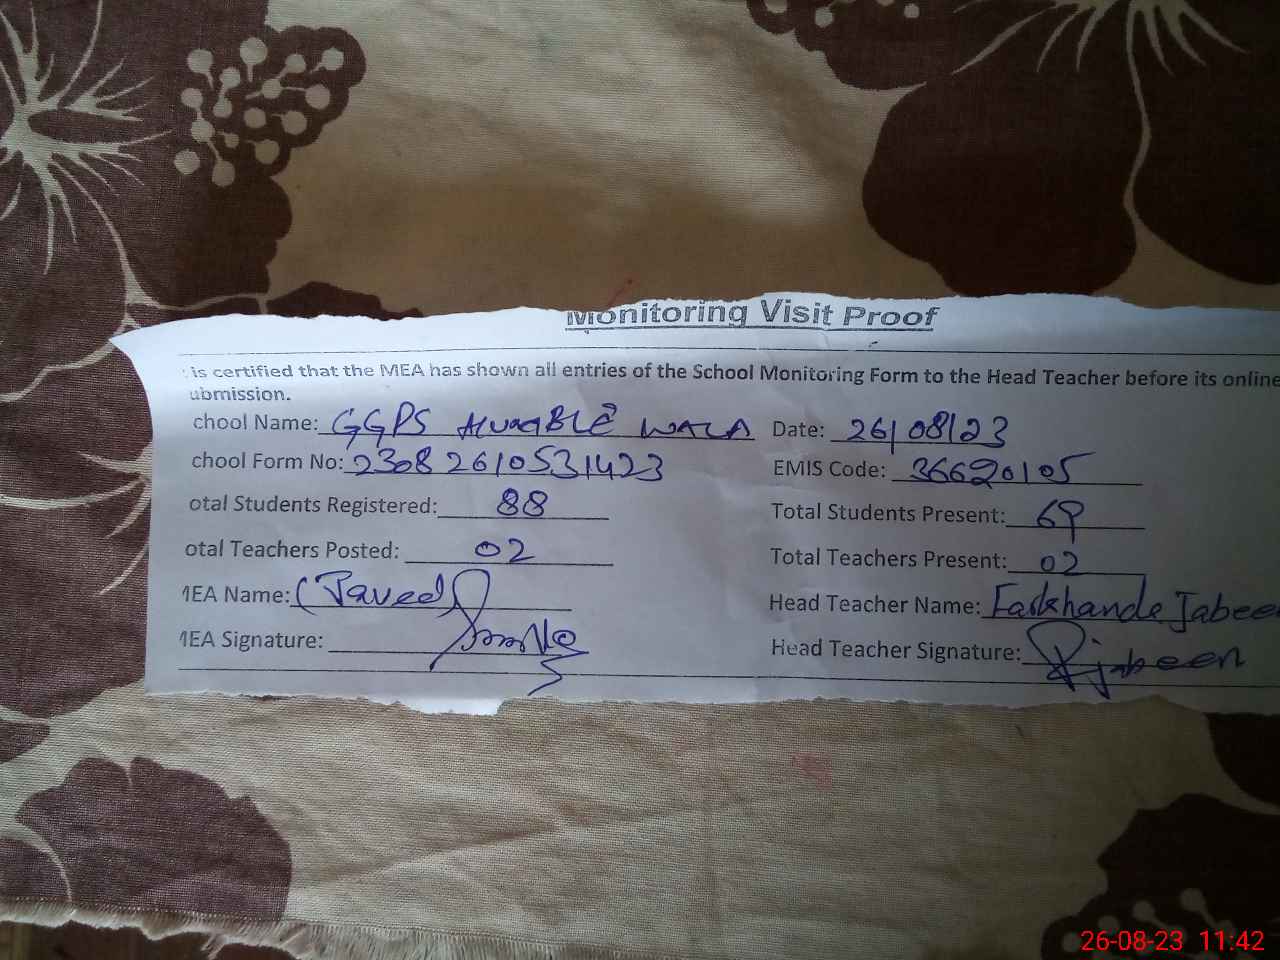 Monitoring Visit Proof
is certified that the MEA has shown all entries of the School Monitoring Form to the Head Teacher before its online
ubmission.
chool Name: GGPS WALA Date: 26/08/23
chool Form No: 2308 2610531423 EMIS Code: 36620105
otal Students Registered: 88 Total Students Present: 69
otal Teachers Posted: 02 Total Teachers Present: 02
MEA Name: (Javed) Head Teacher Name: Farkhanda Jabee
MEA Signature: Head Teacher Signature: jabeen
26-08-23 11:42